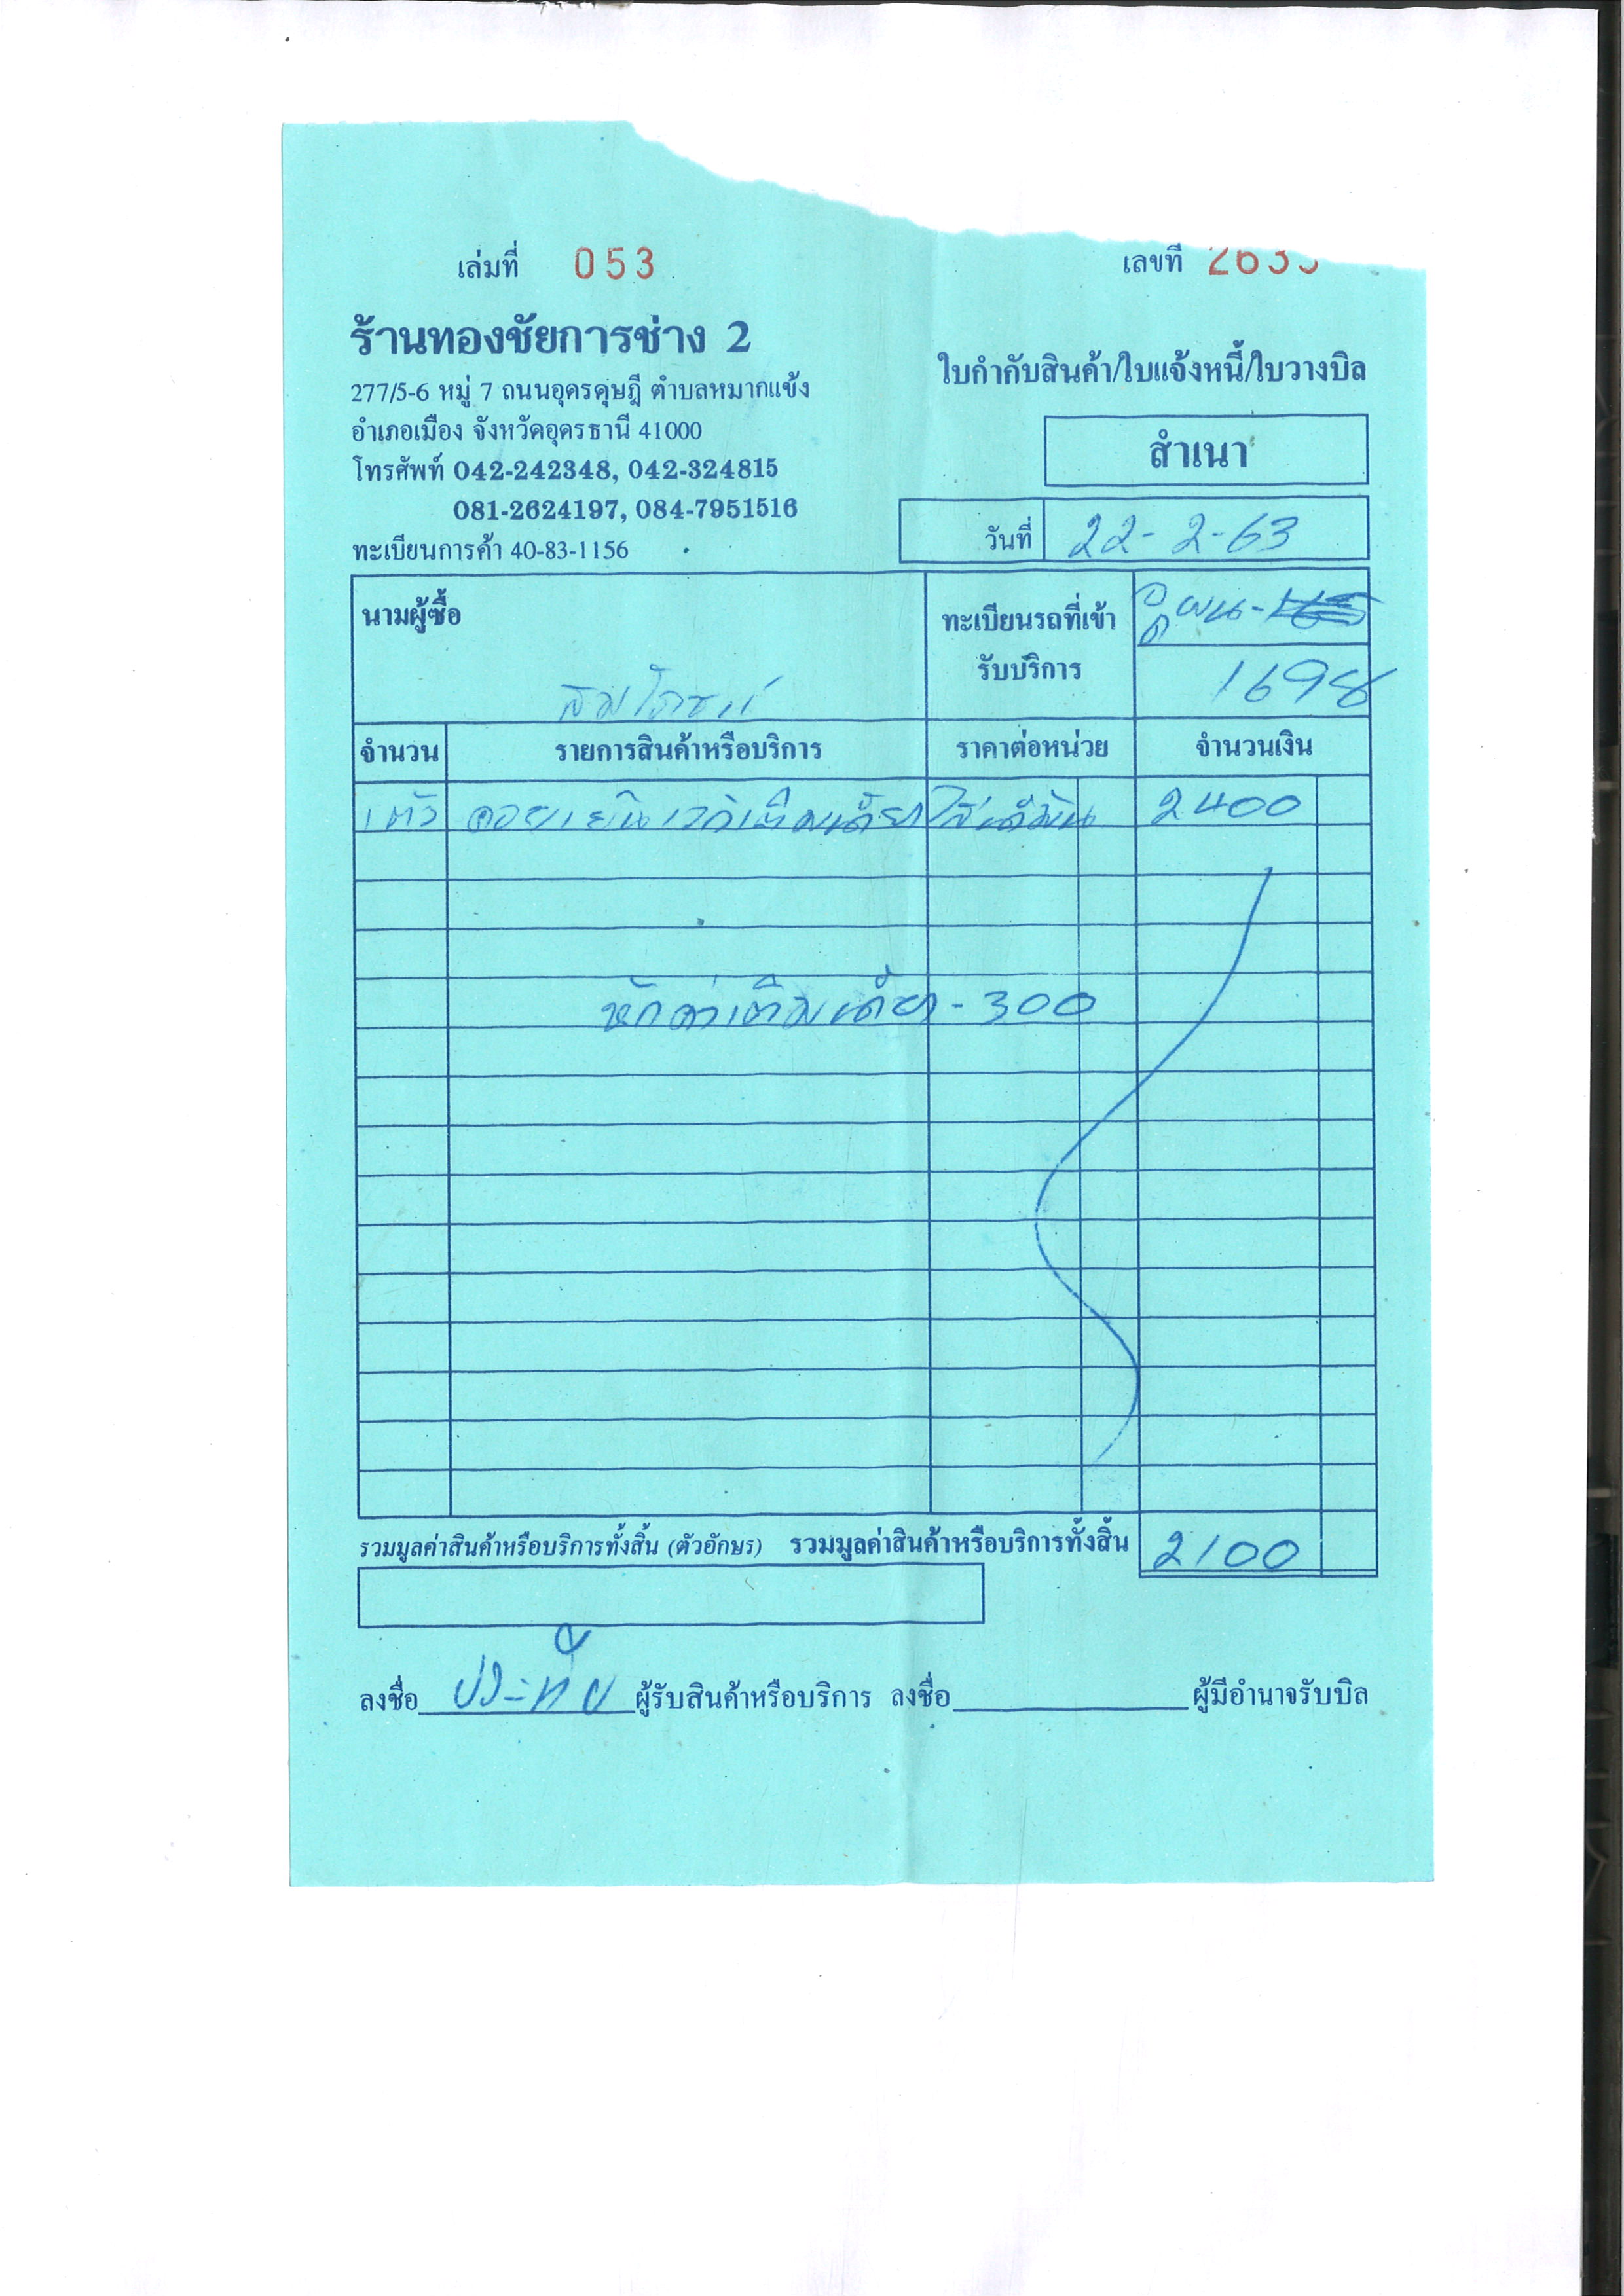 เล่มที่ 053 เลขที่
ร้านทองชัยการช่าง 2
ใบกำกับสินค้า/ใบแจ้งหนี้/ใบวางบิล
277/5-6 หมู่ 7 ถนนอุดรดุษฎี ตำบลหมากแข้ง
อำเภอเมือง จังหวัดอุดรธานี 41000
สำเนา
โทรศัพท์ 042-242348, 042-324815
081-2624197, 084-7951516
วันที่ 22-2-63
ทะเบียนการค้า 40-83-1156
นามผู้ซื้อ
ทะเบียนรถที่เข้า
รับบริการ 1698
จำนวน รายการสินค้าหรือบริการ ราคาต่อหน่วย จำนวนเงิน
1 ตัว คอยเย็น 2400
หักค่าเติม - 300
รวมมูลค่าสินค้าหรือบริการทั้งสิ้น (ตัวอักษร) รวมมูลค่าสินค้าหรือบริการทั้งสิ้น 2100
ลงชื่อ ผู้รับสินค้าหรือบริการ ลงชื่อ ผู้มีอำนาจรับบิล